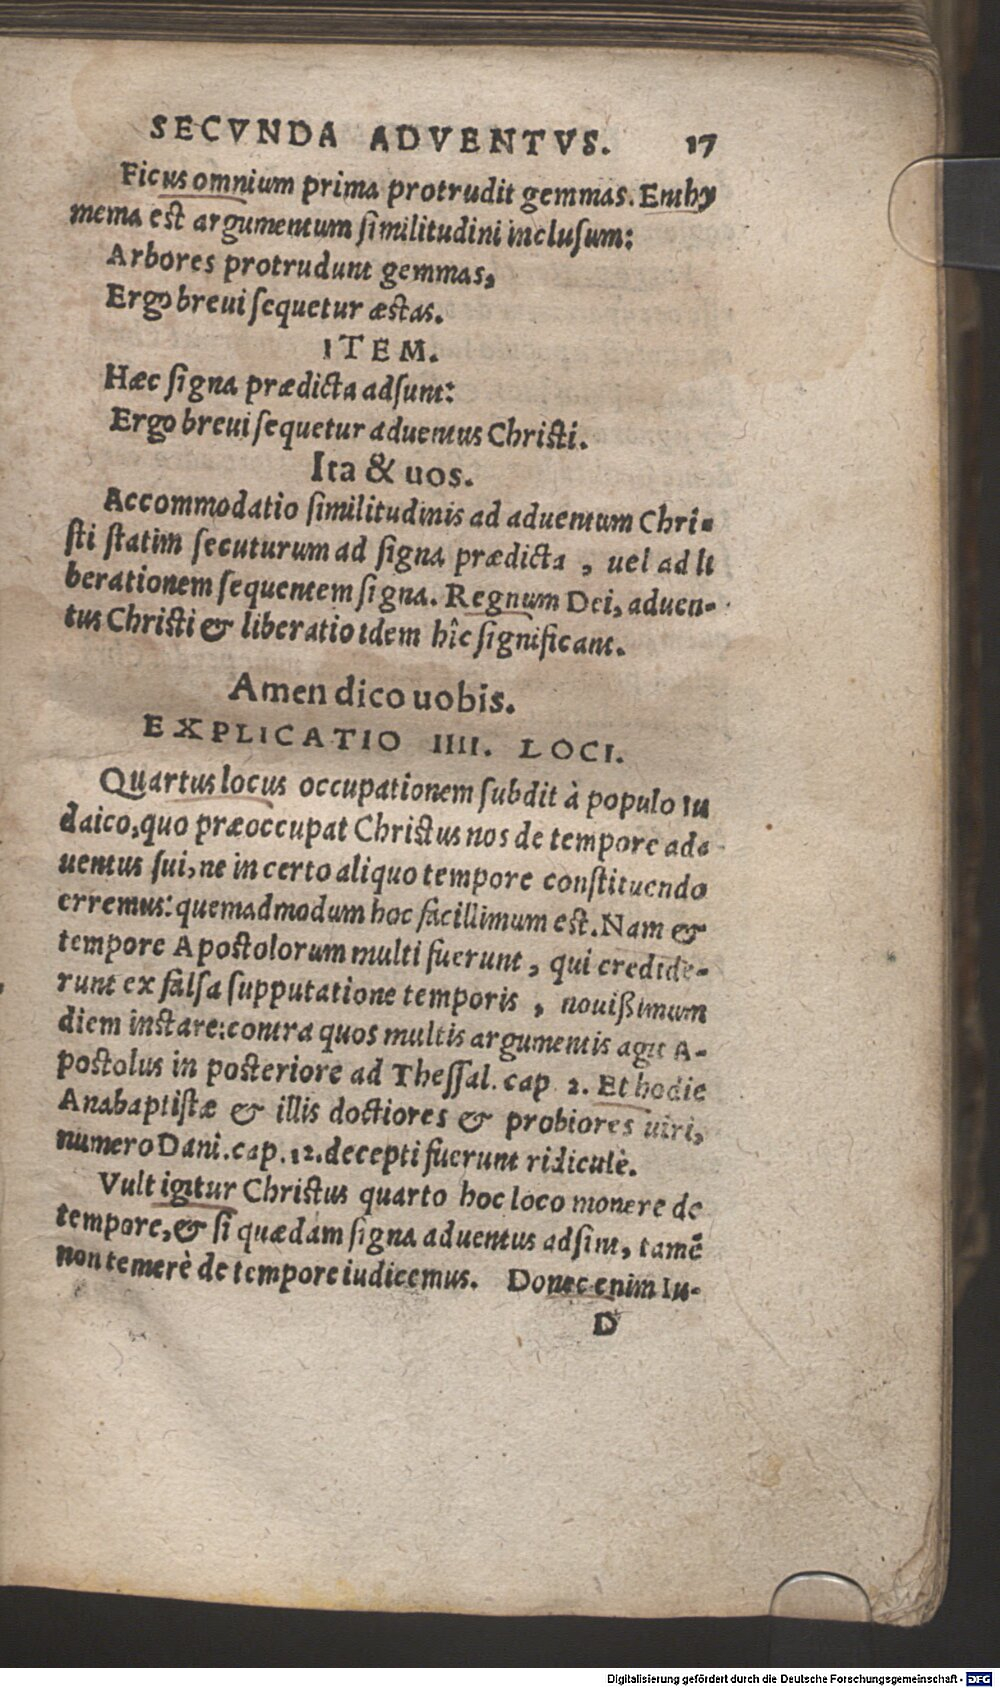 SECVNDA ADVENTVS. 17
Ficus omnium prima protrudit gemmas. Enthy
mema est argumentum similitudini inclusum:
Arbores protrudunt gemmas,
Ergo breui sequetur æstas.
ITEM.
Hæc signa prædicta adsunt:
Ergo breui sequetur aduentus Christi.
Ita & uos.
Accommodatio similitudinis ad aduentum Chri-
sti statim secuturum ad signa prædicta, uel ad li
berationem sequentem signa. Regnum Dei, aduen-
tus Christi & liberatio idem hîc significant.
Amen dico uobis.
EXPLICATIO IIII. LOCI.
Quartus locus occupationem subdit à populo Iu
daico, quo præoccupat Christus nos de tempore ad-
uentus sui, ne in certo aliquo tempore constituendo
erremus: quemadmodum hoc facillimum est. Nam &
tempore Apostolorum multi fuerunt, qui credide-
runt ex falsa supputatione temporis, nouißimum
diem instare: contra quos multis argumentis agit A-
postolus in posteriore ad Thessal. cap 2. Et hodie
Anabaptistæ & illis doctiores & probiores uiri,
numero Dani. cap. 12. decepti fuerunt ridiculè.
Vult igitur Christus quarto hoc loco monere de
tempore, & si quædam signa aduentus adsint, tamē
non temerè de tempore iudicemus. Donec enim Iu-
D
Digitalisierung gefördert durch die Deutsche Forschungsgemeinschaft - DFG